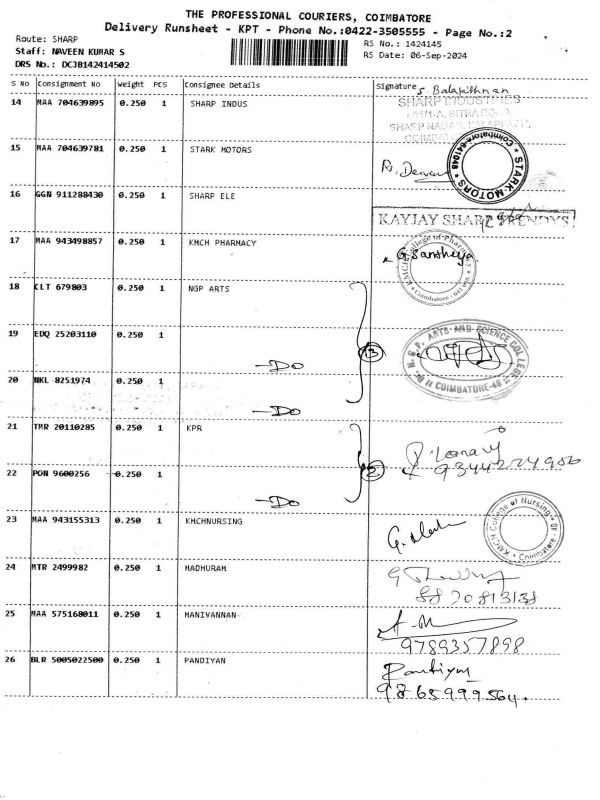 THE PROFESSIONAL COURIERS, COIMBATORE
Delivery Runsheet - KPT - Phone No.:0422-3505555 - Page No.:2
Route: SHARP
RS No.: 1424145
Staff: NAVEEN KUMAR S
RS Date: 06-Sep-2024
DRS No.: DCJB142414502
S No Consignment No Weight PCS Consignee Details Signature
14 MAA 704639895 0.250 1 SHARP INDUS
SHARP INDUSTRIES
15 MAA 704639781 0.250 1 STARK MOTORS
STARK MOTORS
Coimbatore-641048
16 GGN 911288430 0.250 1 SHARP ELE
KAYJAY SHARP TRENDYS
17 MAA 943498857 0.250 1 KMCH PHARMACY
G. Santhiya
KMCH College of Pharmacy
18 CLT 679803 0.250 1 NGP ARTS
19 EDQ 25203110 0.250 1
-Do
13
N.G.P. ARTS AND SCIENCE COLLEGE
COIMBATORE-48
20 NKL 8251974 0.250 1
-Do
21 TMR 20110285 0.250 1 KPR
2
9344224906
22 PON 9600256 0.250 1
-Do
23 MAA 943155313 0.250 1 KMCHNURSING
KMCH College of Nursing
Coimbatore
24 MTR 2499982 0.250 1 MADHURAM
8870813138
25 MAA 575168011 0.250 1 MANIVANNAN
9789357898
26 BLR 5005022500 0.250 1 PANDIYAN
Pandiyan
9865999564